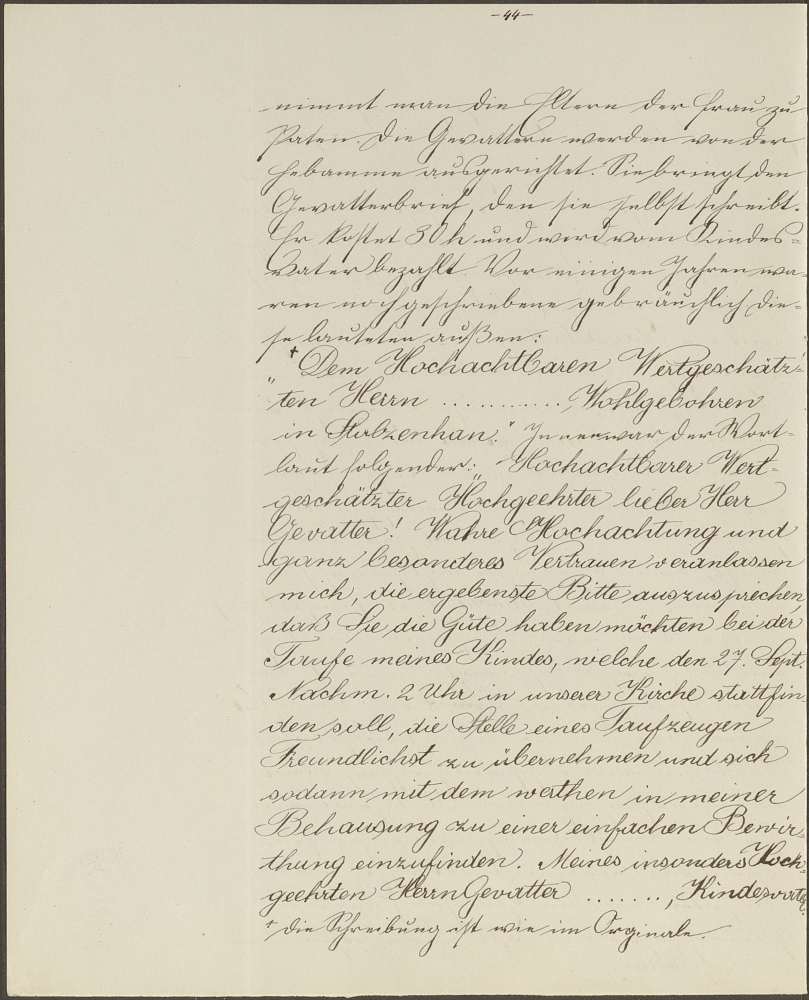 -44-
nimmt man die Eltern der Frau zu
Paten. Die Gevattern werden von der
Hebamme ausgerichtet. Sie bringt den
Gevatterbrief, den sie selbst schreibt.
Er kostet 30 h und wird vom Kindes-
vater bezahlt. Vor einigen Jahren wa-
ren noch geschriebene gebräuchlich die-
se lauteten außen:
+ Dem Hochachtbaren Wertgeschätz-
"ten Herrn ..........., Wohlgebohren
in Stabzenhan." Innen war der Wort-
laut folgender: „Hochachtbarer Wert-
geschätzter Hochgeehrter lieber Herr
Gevatter! Wahre Hochachtung und
ganz besonderes Vertrauen veranlassen
mich, die ergebenste Bitte auszusprechen,
daß Sie die Güte haben möchten bei der
Taufe meines Kindes, welche den 27. Sept.
Nachm. 2 Uhr in unserer Kirche stattfin
den soll, die Stelle eines Taufzeugen
Freundlichst zu übernehmen und sich
sodann mit dem werthen in meiner
Behausung zu einer einfachen Bewir-
thung einzufinden. Meines insonders Hoch-
geehrten Herrn Gevatter ......., Kindesvater.
+ Die Schreibung ist wie im Orginale.